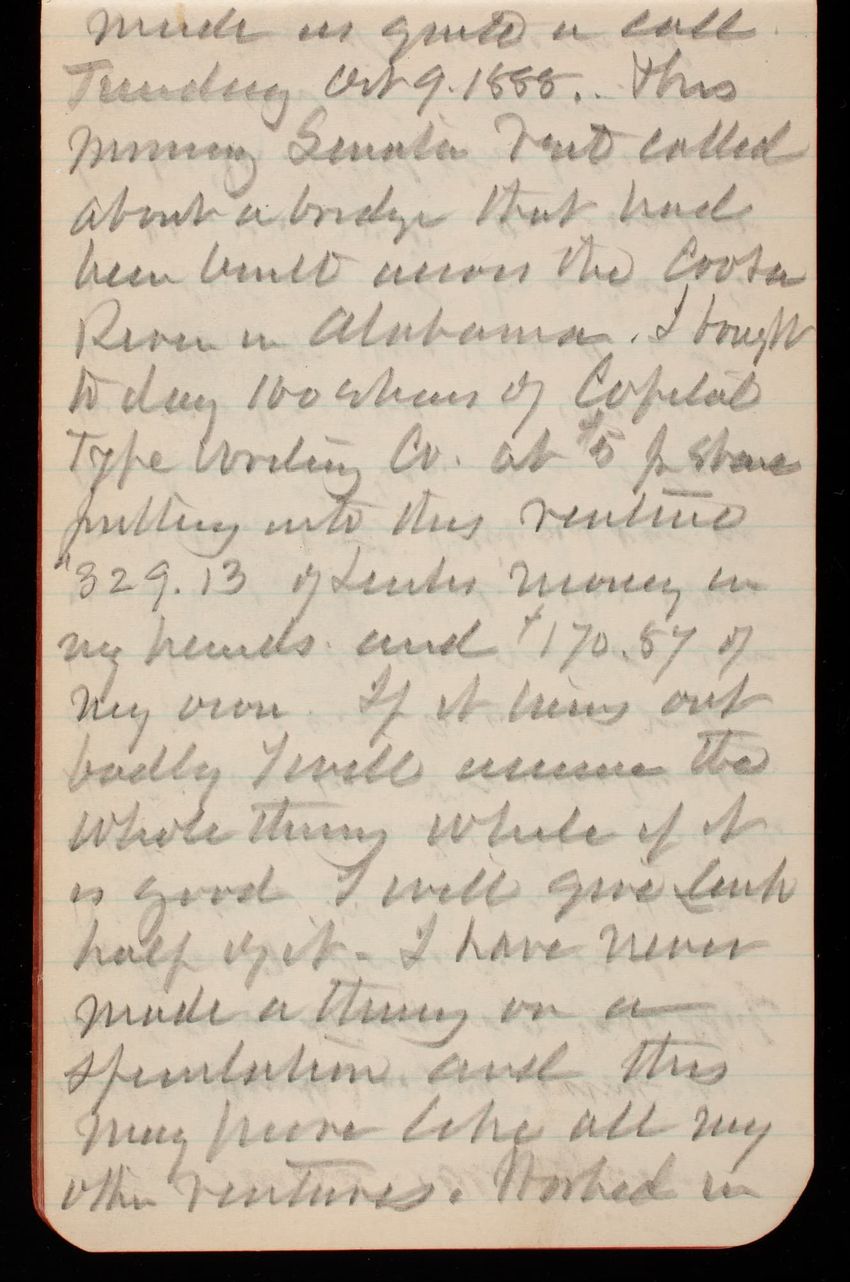 made us quite a call
Tuesday Oct 9. 1888. This
morning Senator called
about a bridge that had
been built across the Coosa
River in Alabama. I bought
to day 100 shares of Capital
Type Writing Co. at $5 pr Share
putting into this venture
$329.13 of money in
my hands and $170.87 of
my own. If it turns out
badly I will assume the
whole thing while if it
is good I will give
half of it - I have never
made a thing on a
speculation and this
may prove like all my
other ventures. Worked in